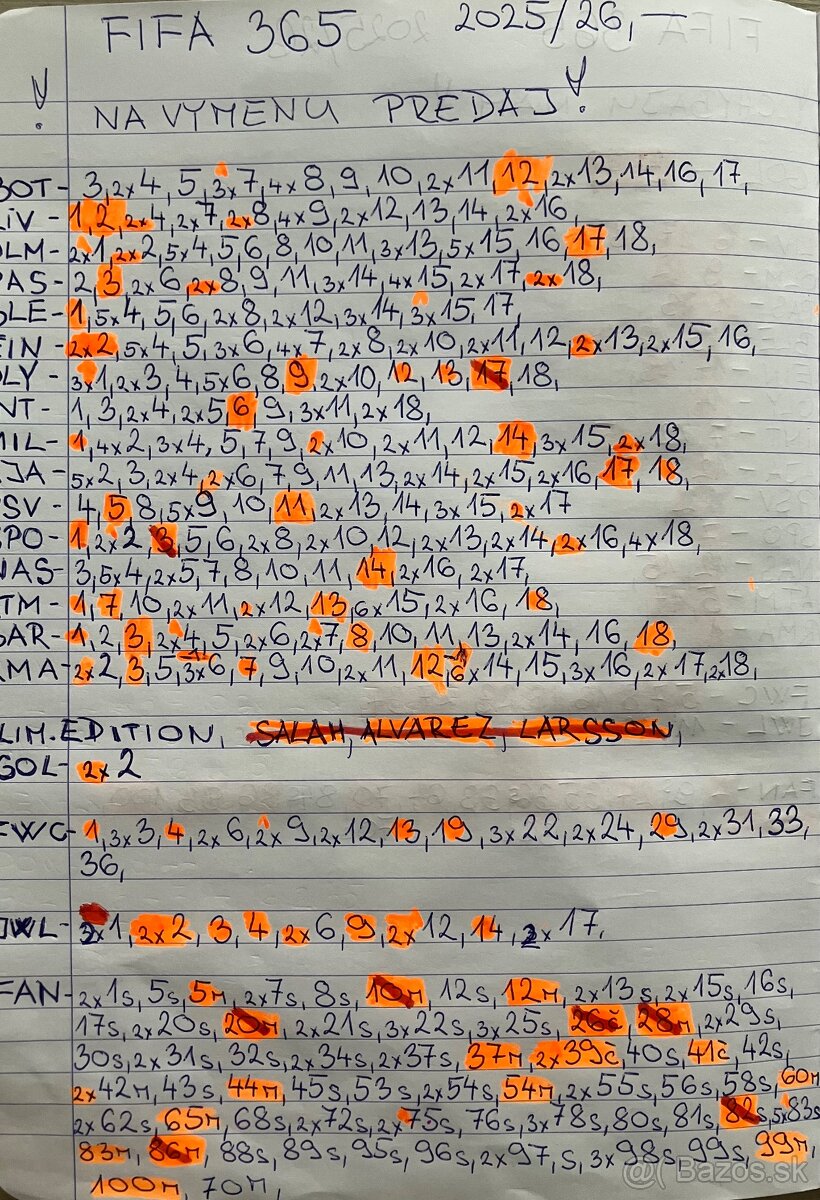 FIFA 365 2025/26,-
! NA VÝMENU PREDAJ !
BOT- 3, 2x4, 5, 3x7, 4x8, 9, 10, 2x11, 12, 2x13, 14, 16, 17,
LIV - 1, 2, 2x4, 2x7, 2x8, 4x9, 2x12, 13, 14, 2x16,
OLM- 2x1, 2x2, 5x4, 5, 6, 8, 10, 11, 3x13, 5x15, 16, 17, 18,
PAS- 2, 3, 2x6, 2x8, 9, 11, 3x14, 4x15, 2x17, 2x18,
SLE- 1, 5x4, 5, 6, 2x8, 2x12, 3x14, 3x15, 17,
EIN- 2x2, 5x4, 5, 3x6, 4x7, 2x8, 2x10, 2x11, 12, 2x13, 2x15, 16,
OLY- 3x1, 2x3, 4, 5x6, 8, 9, 2x10, 12, 13, 17, 18,
INT- 1, 3, 2x4, 2x5, 6, 9, 3x11, 2x18,
MIL- 1, 4x2, 3x4, 5, 7, 9, 2x10, 2x11, 12, 14, 3x15, 2x18,
AJA- 5x2, 3, 2x4, 2x6, 7, 9, 11, 13, 2x14, 2x15, 2x16, 17, 18,
PSV- 4, 5, 8, 5x9, 10, 11, 2x13, 14, 3x15, 2x17
SPO- 1, 2x2, 3, 5, 6, 2x8, 2x10, 12, 2x13, 2x14, 2x16, 4x18,
NAS- 3, 5x4, 2x5, 7, 8, 10, 11, 14, 2x16, 2x17,
ATM- 1, 7, 10, 2x11, 2x12, 13, 6x15, 2x16, 18,
BAR- 1, 2, 3, 2x4, 5, 2x6, 2x7, 8, 10, 11, 13, 2x14, 16, 18,
RMA- 2x2, 3, 5, 3x6, 7, 9, 10, 2x11, 12, 6x14, 15, 3x16, 2x17, 2x18,
LIM. EDITION, SALAH, ALVAREZ, LARSSON,
GOL- 2x2
FWC- 1, 3x3, 4, 2x6, 2x9, 2x12, 13, 19, 3x22, 2x24, 29, 2x31, 33,
36,
JWL- 3x1, 2x2, 3, 4, 2x6, 9, 2x12, 14, 2x17,
FAN- 2x1s, 5s, 5m, 2x7s, 8s, 10m, 12s, 12m, 2x13s, 2x15s, 16s,
17s, 2x20s, 20m, 2x21s, 3x22s, 3x25s, 26č, 28m, 2x29s,
30s, 2x31s, 32s, 2x34s, 2x37s, 37m, 2x39č, 40s, 41č, 42s,
2x42m, 43s, 44m, 45s, 53s, 2x54s, 54m, 2x55s, 56s, 58s, 60m
2x62s, 65m, 68s, 2x72s, 2x75s, 76s, 3x78s, 80s, 81s, 82s, 5x83s
83m, 86m, 88s, 89s, 95s, 96s, 2x97, s, 3x98s, 99s, 99m,
100m, 70m,
Bazos.sk